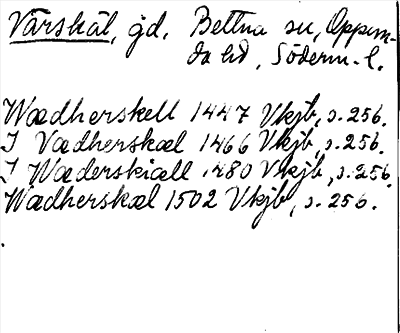 Vårskäl, gd. Bettna sn, Oppun-
da hd, Söderm. l.
Wædherskell 1447 Vkjb, s. 256.
I Vædherskæl 1466 Vkjb, s. 256.
I Wæderskiæll 1480 Vkjb, s. 256.
Wædherskæl 1502 Vkjb, s. 256.